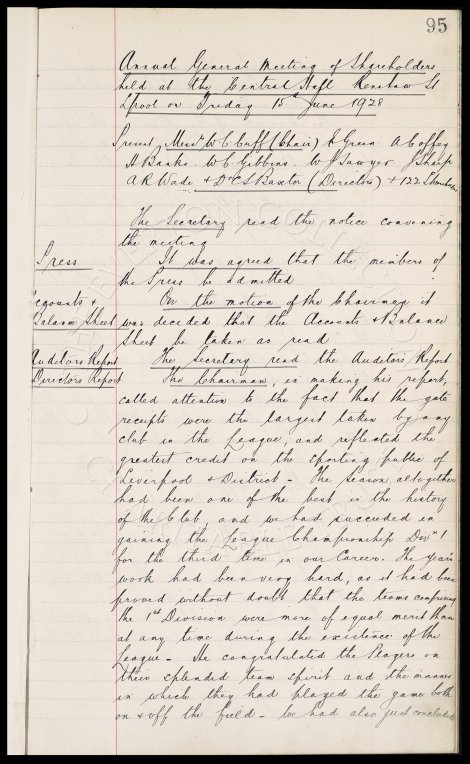 95
Annual General Meeting of Shareholders
held at the Central Hall Renshaw St
Lpool on Friday 15th June 1928
Present Messrs W.C. Cuff (Chair) E Green. A Coffey
H Banks. W.C Gibbins. W J Sawyer J Sharp
A R Wade & Dr C S Baxter (Directors) + 122 Shareholders
The Secretary read the notice convening
the meeting
Press
It was agreed that the members of
the Press be admitted
Accounts &
On the motion of the Chairman it
Balance Sheet
was decided that the Accounts & Balance
Sheet be taken as read
Auditors Report
The Secretary read the Auditors Report
Directors Report
The Chairman, in making his report,
called attention to the fact that the gate
receipts were the largest taken by any
club in the League, and reflected the
greatest credit on the sporting public of
Liverpool & District - The season altogether
had been one of the best in the history
of the Club, and we had succeeded in
gaining the League Championship Divn 1
for the third time in our Career. The year's
work had been very hard, as it had been
proved without doubt that the teams comprising
the 1st Division were more of equal merit than
at any time during the existence of the
League - He congratulated the Players on
their splended team spirit and the manner
in which they had played the game both
on & off the field - We had also just concluded